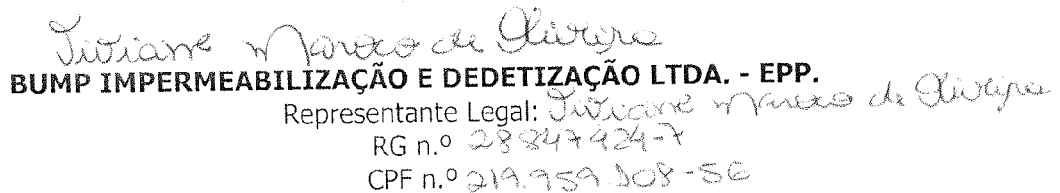 Viviane Maroco de Oliveira
BUMP IMPERMEABILIZAÇÃO E DEDETIZAÇÃO LTDA. - EPP.
Representante Legal: Viviane Maroco de Oliveira
RG n.º 28847424-7
CPF n.º 219.959.508-56